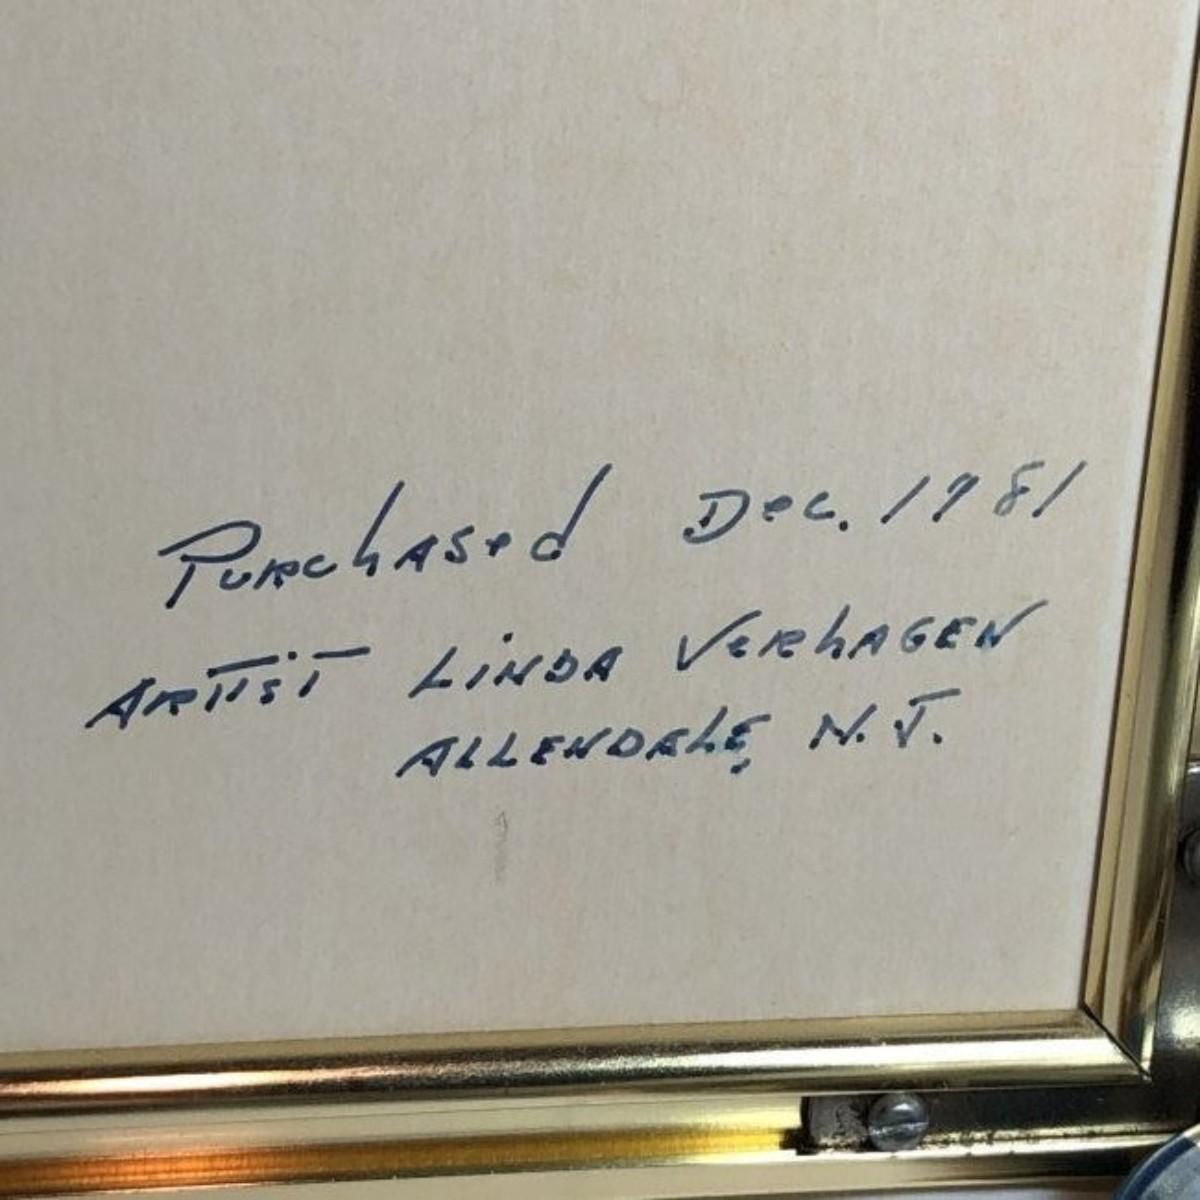 Purchased Dec. 1981
Artist Linda Verhagen
Allendale, N.J.